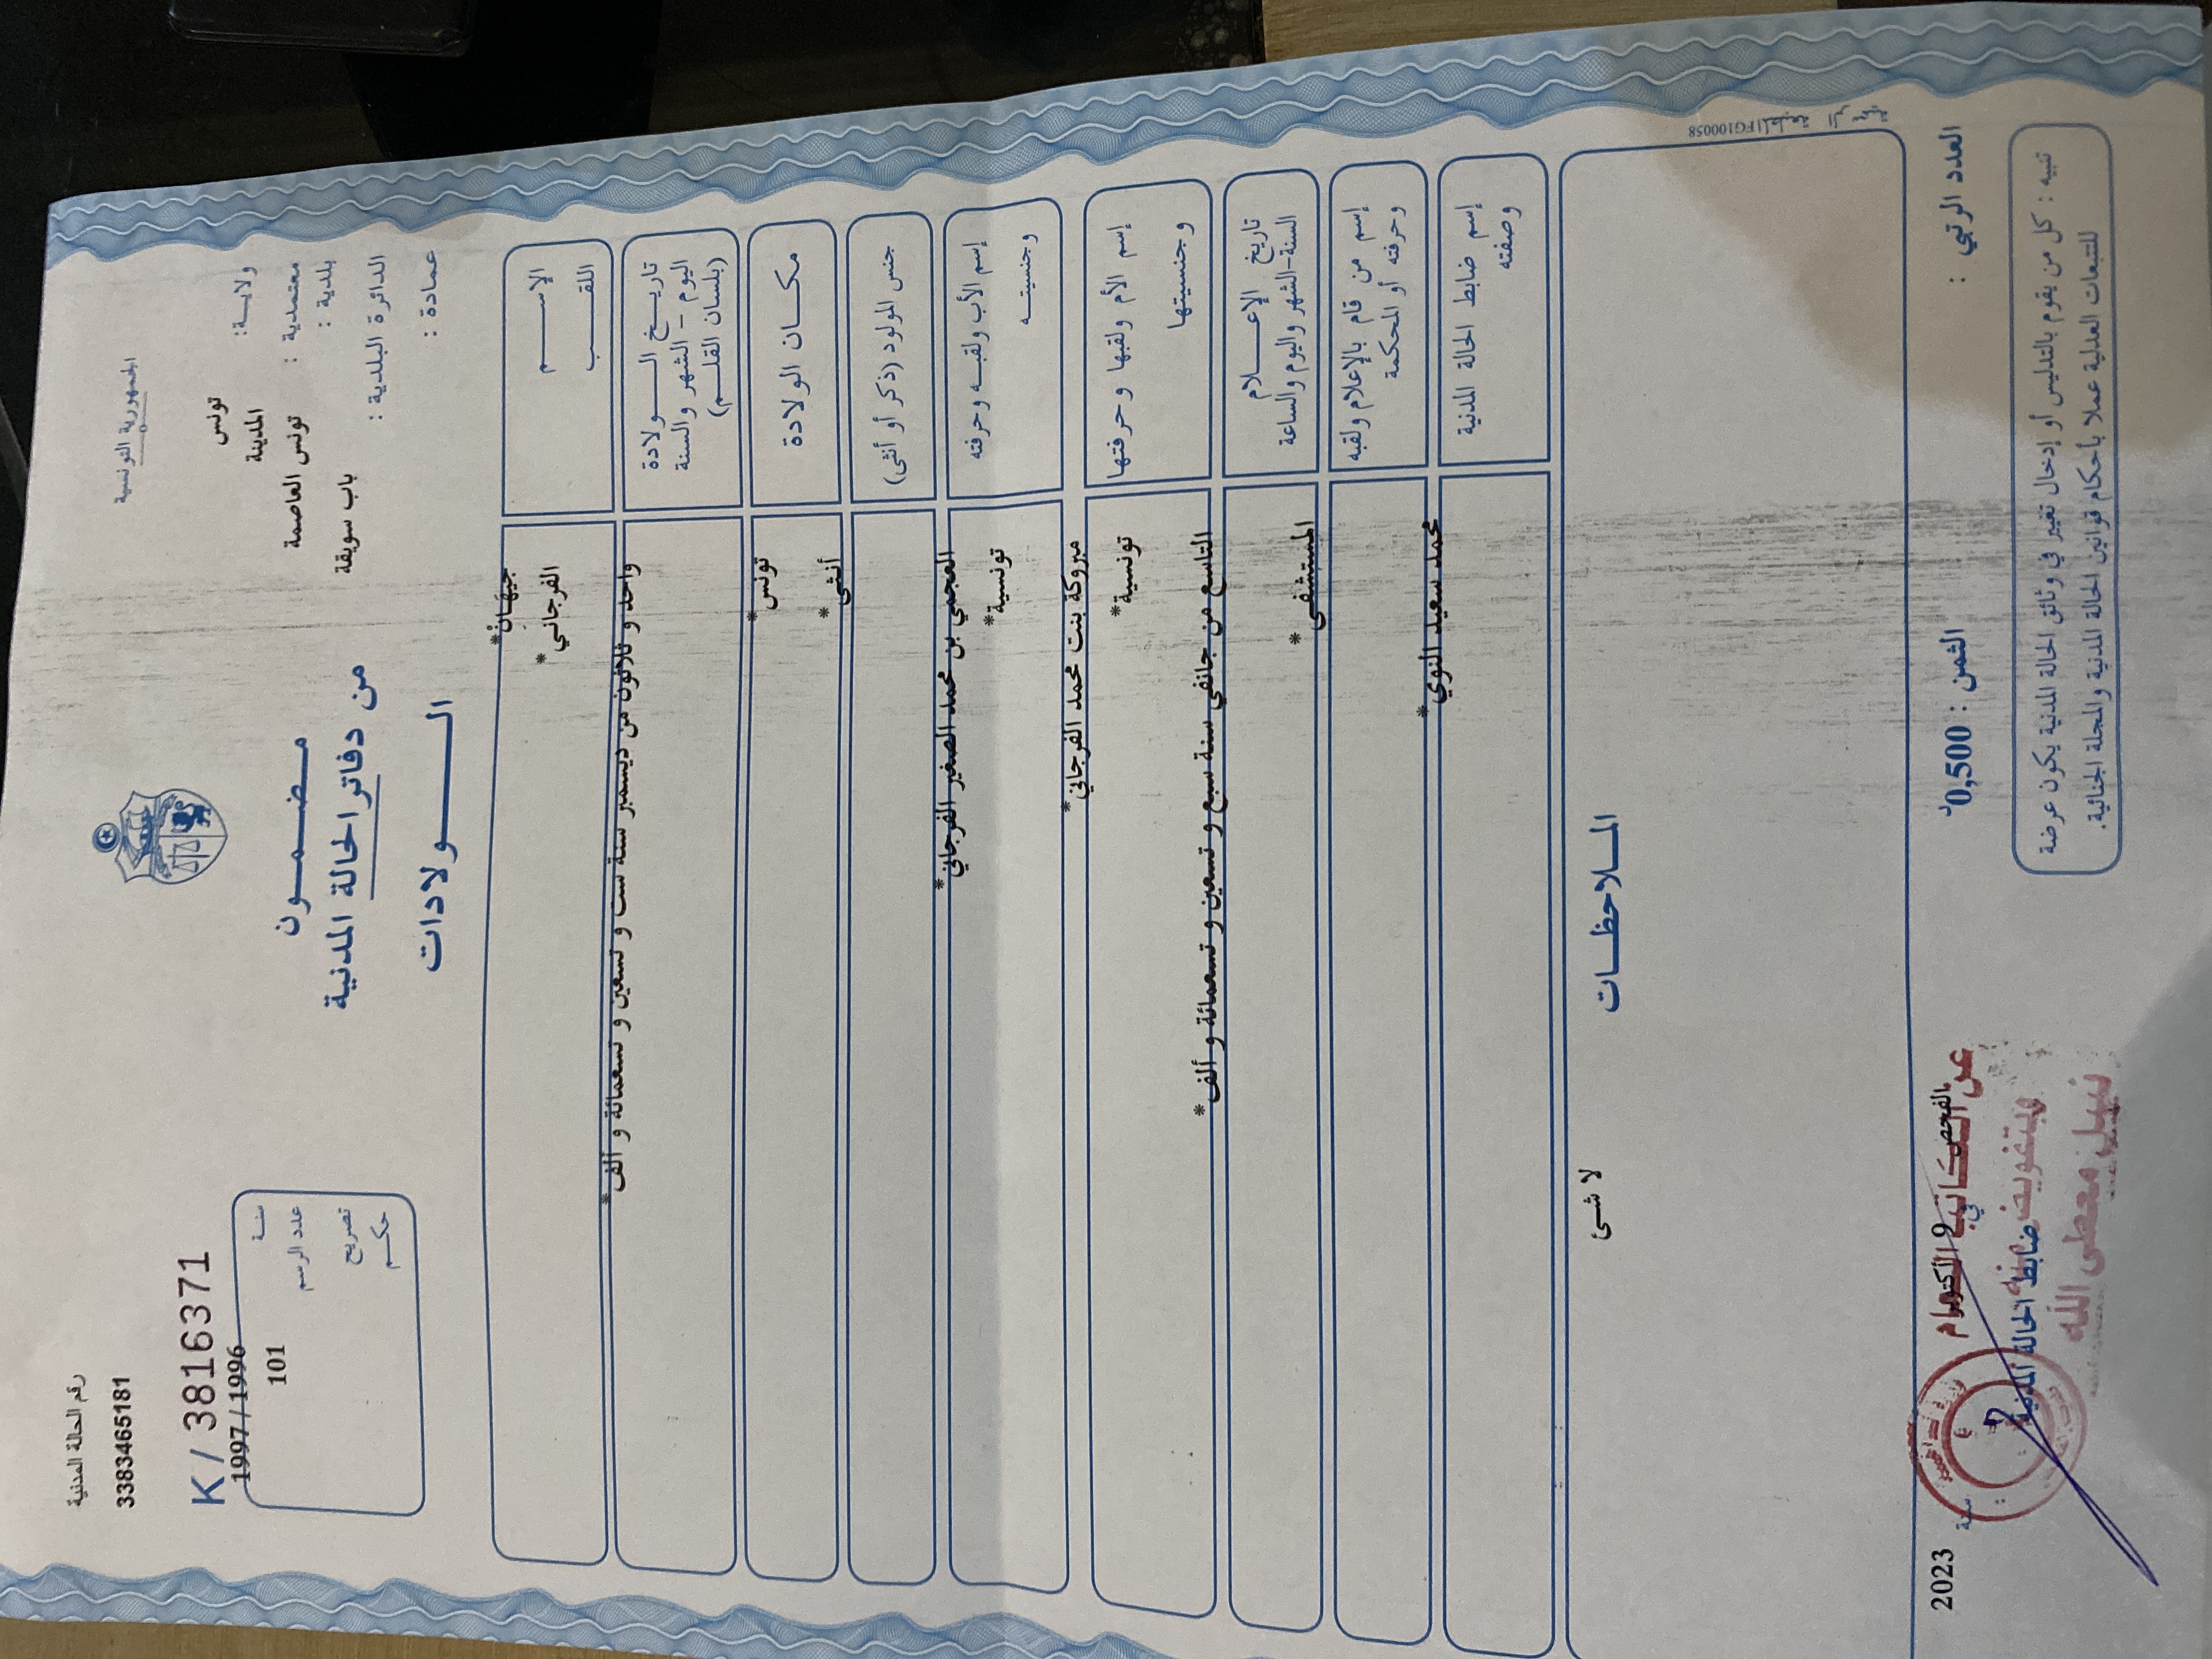 الجمهورية التونسية
رقم الحالة المدنية
3383465181
ولاية: تونس
معتمدية : المدينة
بلدية : تونس العاصمة
الدائرة البلدية : باب سويقة
عمادة :
مضمون
من دفاتر الحالة المدنية
الولادات
K / 3816371
1997/1996
سنة
101
عدد الرسم
تصريح
حكم
الإسم
جيهان*
اللقب
الفرجاني*
تاريخ الولادة
اليوم - الشهر والسنة
(بلسان القلم)
واحد و ثلاثون من ديسمبر سنة ست و تسعين و تسعمائة و ألف*
مكان الولادة
تونس*
جنس المولود (ذكر أو أنثى)
أنثى*
إسم الأب ولقبه وحرفته
العجمي بن محمد الصغير الفرجاني*
وجنسيته
تونسية*
إسم الأم ولقبها وحرفتها
مبروكة بنت محمد الفرجاني*
وجنسيتها
تونسية*
تاريخ الإعلام
السنة-الشهر واليوم والساعة
التاسع من جانفي سنة سبع و تسعين و تسعمائة و ألف*
إسم من قام بالإعلام ولقبه
وحرفته أو المحكمة
المستشفى*
إسم ضابط الحالة المدنية
وصفته
محمد سعيد النوي*
الملاحظات
لا شئ
المطبعة الرسمية FG100058
العدد الرتبي :
الثمن : 0,500د
في 9 أكتوبر سنة 2023
ضابط الحالة المدنية
نبيل معطى الله
تنبيه : كل من يقوم بالتدليس أو إدخال تغيير في وثائق الحالة المدنية يكون عرضة
للتتبعات العدلية عملا بأحكام قوانين الحالة المدنية والمجلة الجنائية.